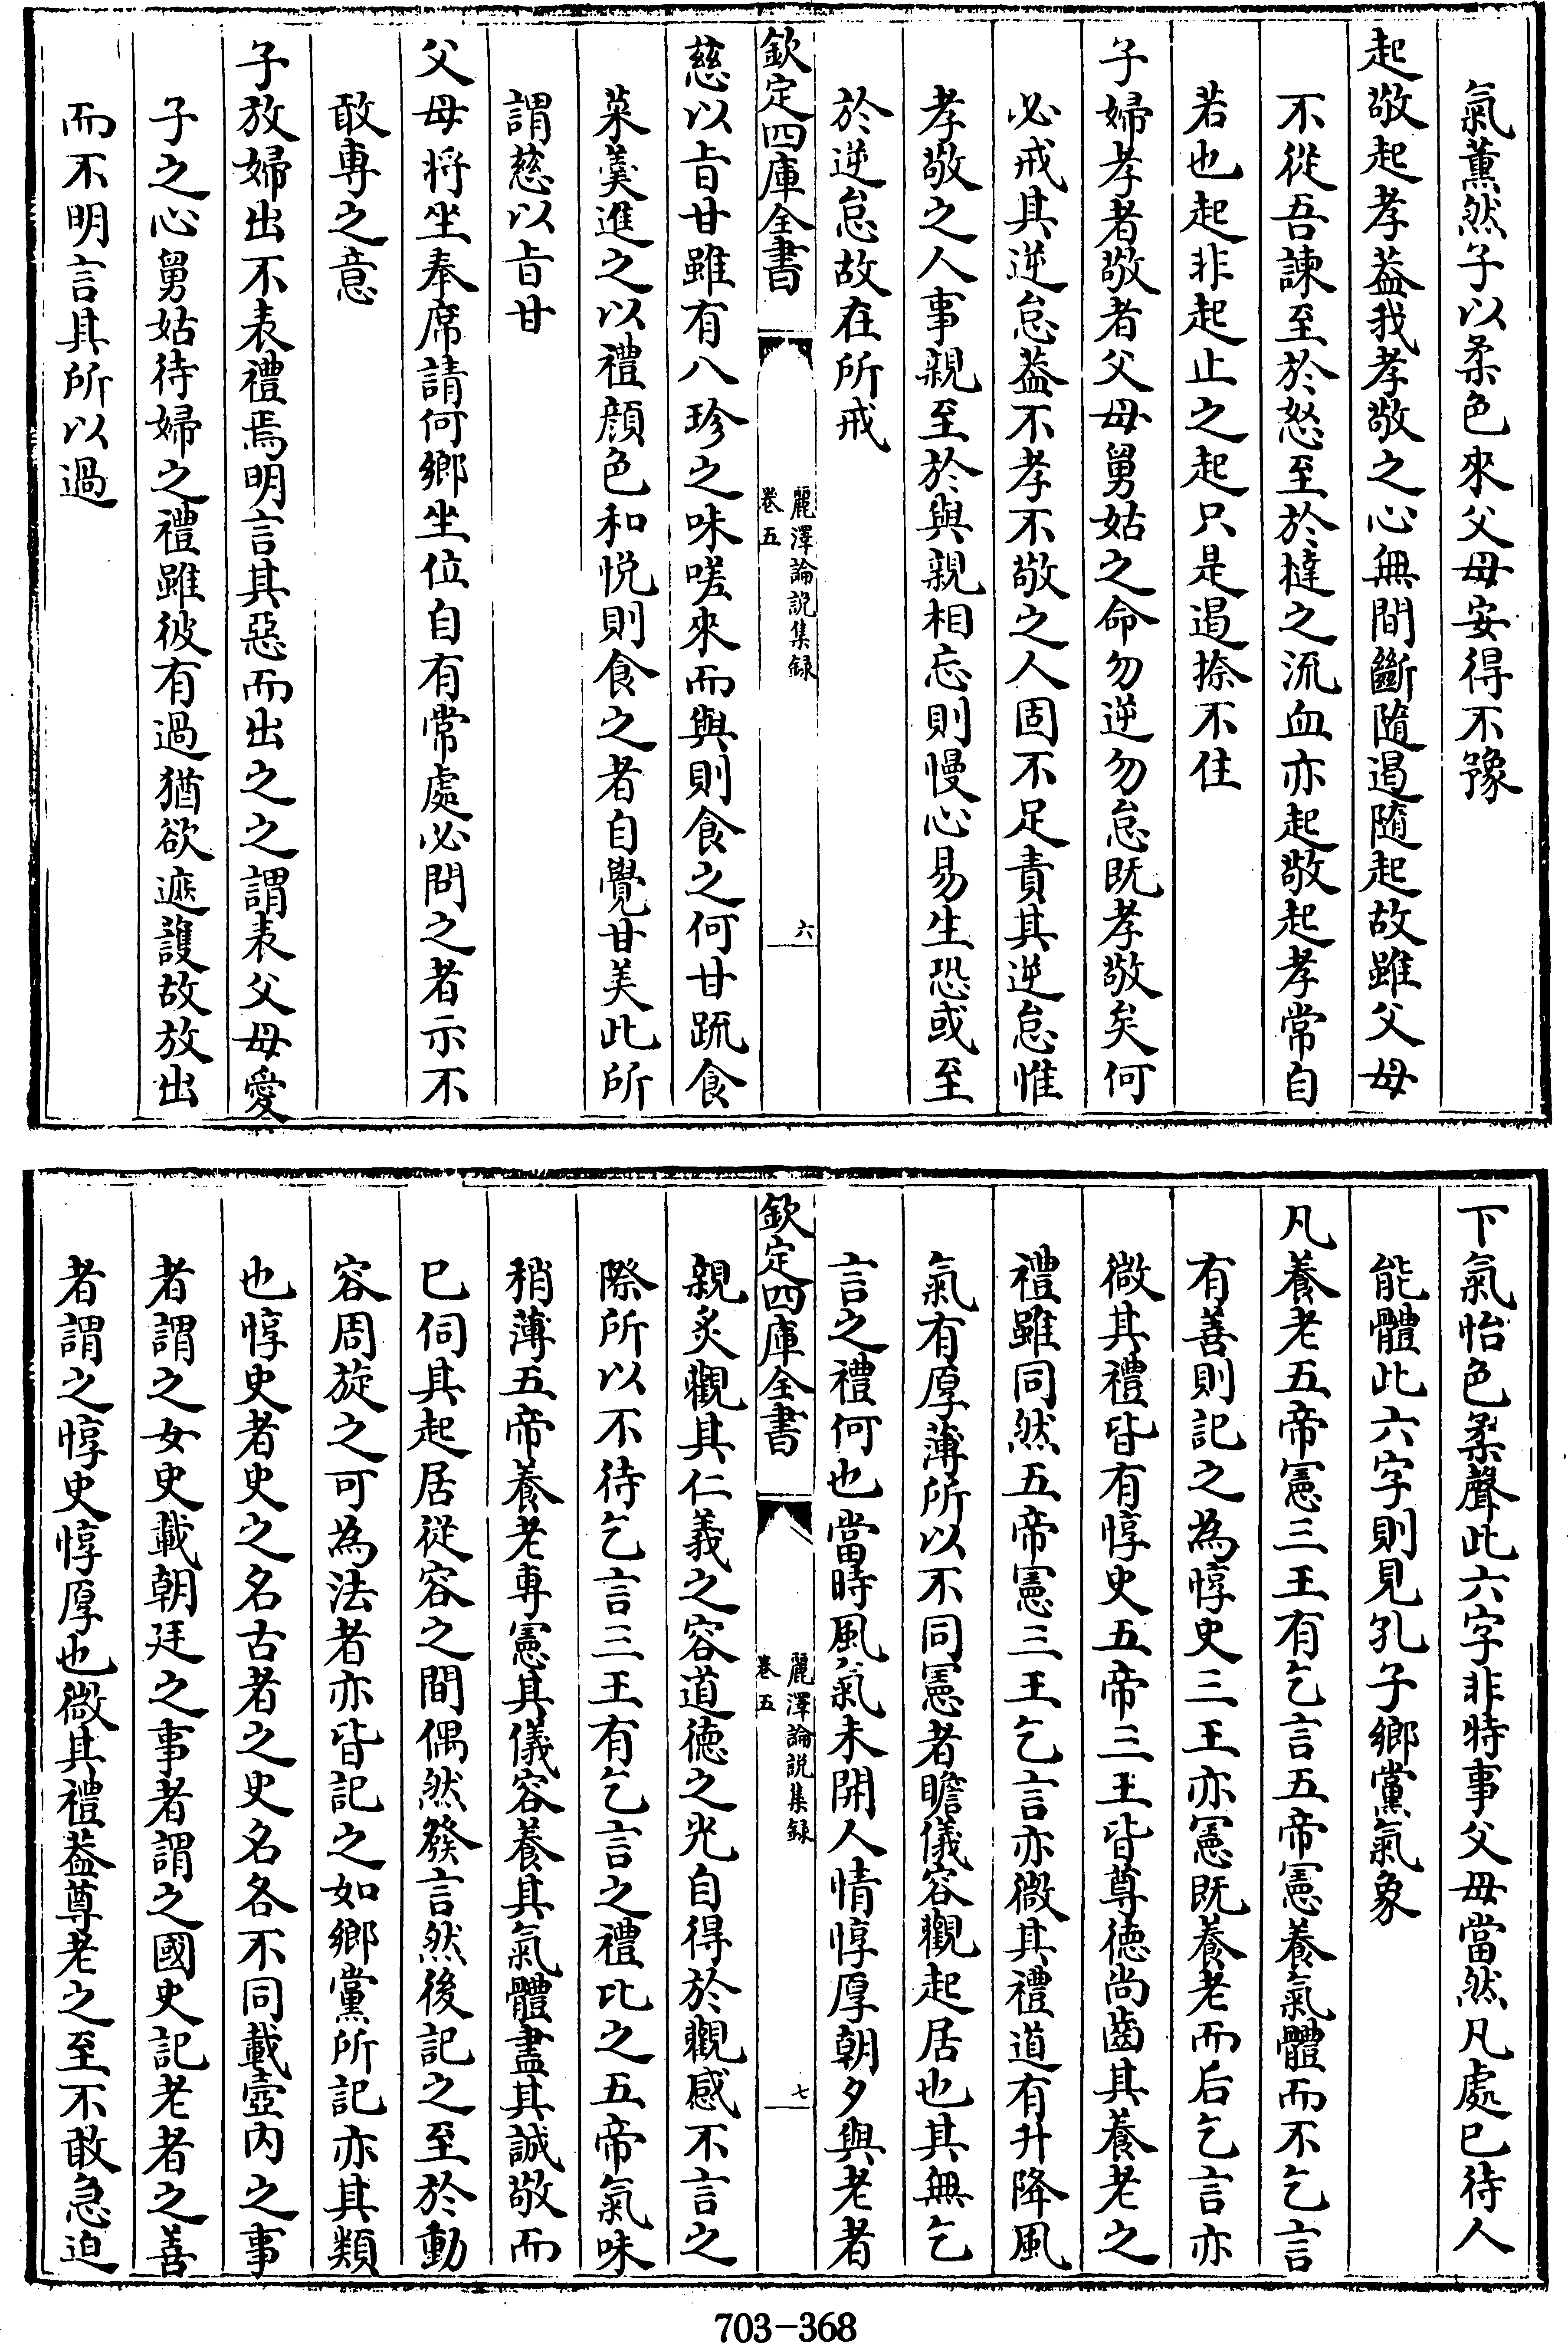 氣薰然子以柔色來父母安得不豫
起敬起孝葢我孝敬之心無間斷隨遏隨起故雖父母
不從吾諫至於怒至於撻之流血亦起敬起孝常自
若也起非起止之起只是遏捺不住
子婦孝者敬者父母舅姑之命勿逆勿怠既孝敬矣何
必戒其逆怠葢不孝不敬之人固不足責其逆怠惟
孝敬之人事親至於與親相忘則慢心易生恐或至
於逆怠故在所戒
欽定四庫全書
麗澤論説集録
卷五
六
慈以旨甘雖有八珍之味嗟來而與則食之何甘疏食
菜羹進之以禮顔色和悦則食之者自覺甘美此所
謂慈以旨甘
父母将坐奉席請何鄉坐位自有常處必問之者示不
敢專之意
子放婦出不表禮焉明言其惡而出之之謂表父母愛
子之心舅姑待婦之禮雖彼有過猶欲遮護故放出
而不明言其所以過
下氣怡色柔聲此六字非特事父母當然凡處已待人
能體此六字則見孔子鄉黨氣象
凡養老五帝憲三王有乞言五帝憲養氣體而不乞言
有善則記之為惇史三王亦憲既養老而后乞言亦
微其禮皆有惇史五帝三王皆尊德尚齒其養老之
禮雖同然五帝憲三王乞言亦微其禮道有升降風
氣有厚薄所以不同憲者瞻儀容觀起居也其無乞
言之禮何也當時風氣未開人情惇厚朝夕與老者
欽定四庫全書
麗澤論説集録
卷五
七
親炙觀其仁義之容道德之光自得於觀感不言之
際所以不待乞言三王有乞言之禮比之五帝氣味
稍薄五帝養老專憲其儀容養其氣體盡其誠敬而
已伺其起居從容之間偶然發言然後記之至於動
容周旋之可為法者亦皆記之如鄉黨所記亦其類
也惇史者史之名古者之史名各不同載壼内之事
者謂之女史載朝廷之事者謂之國史記老者之善
者謂之惇史惇厚也微其禮葢尊老之至不敢急迫
703-368